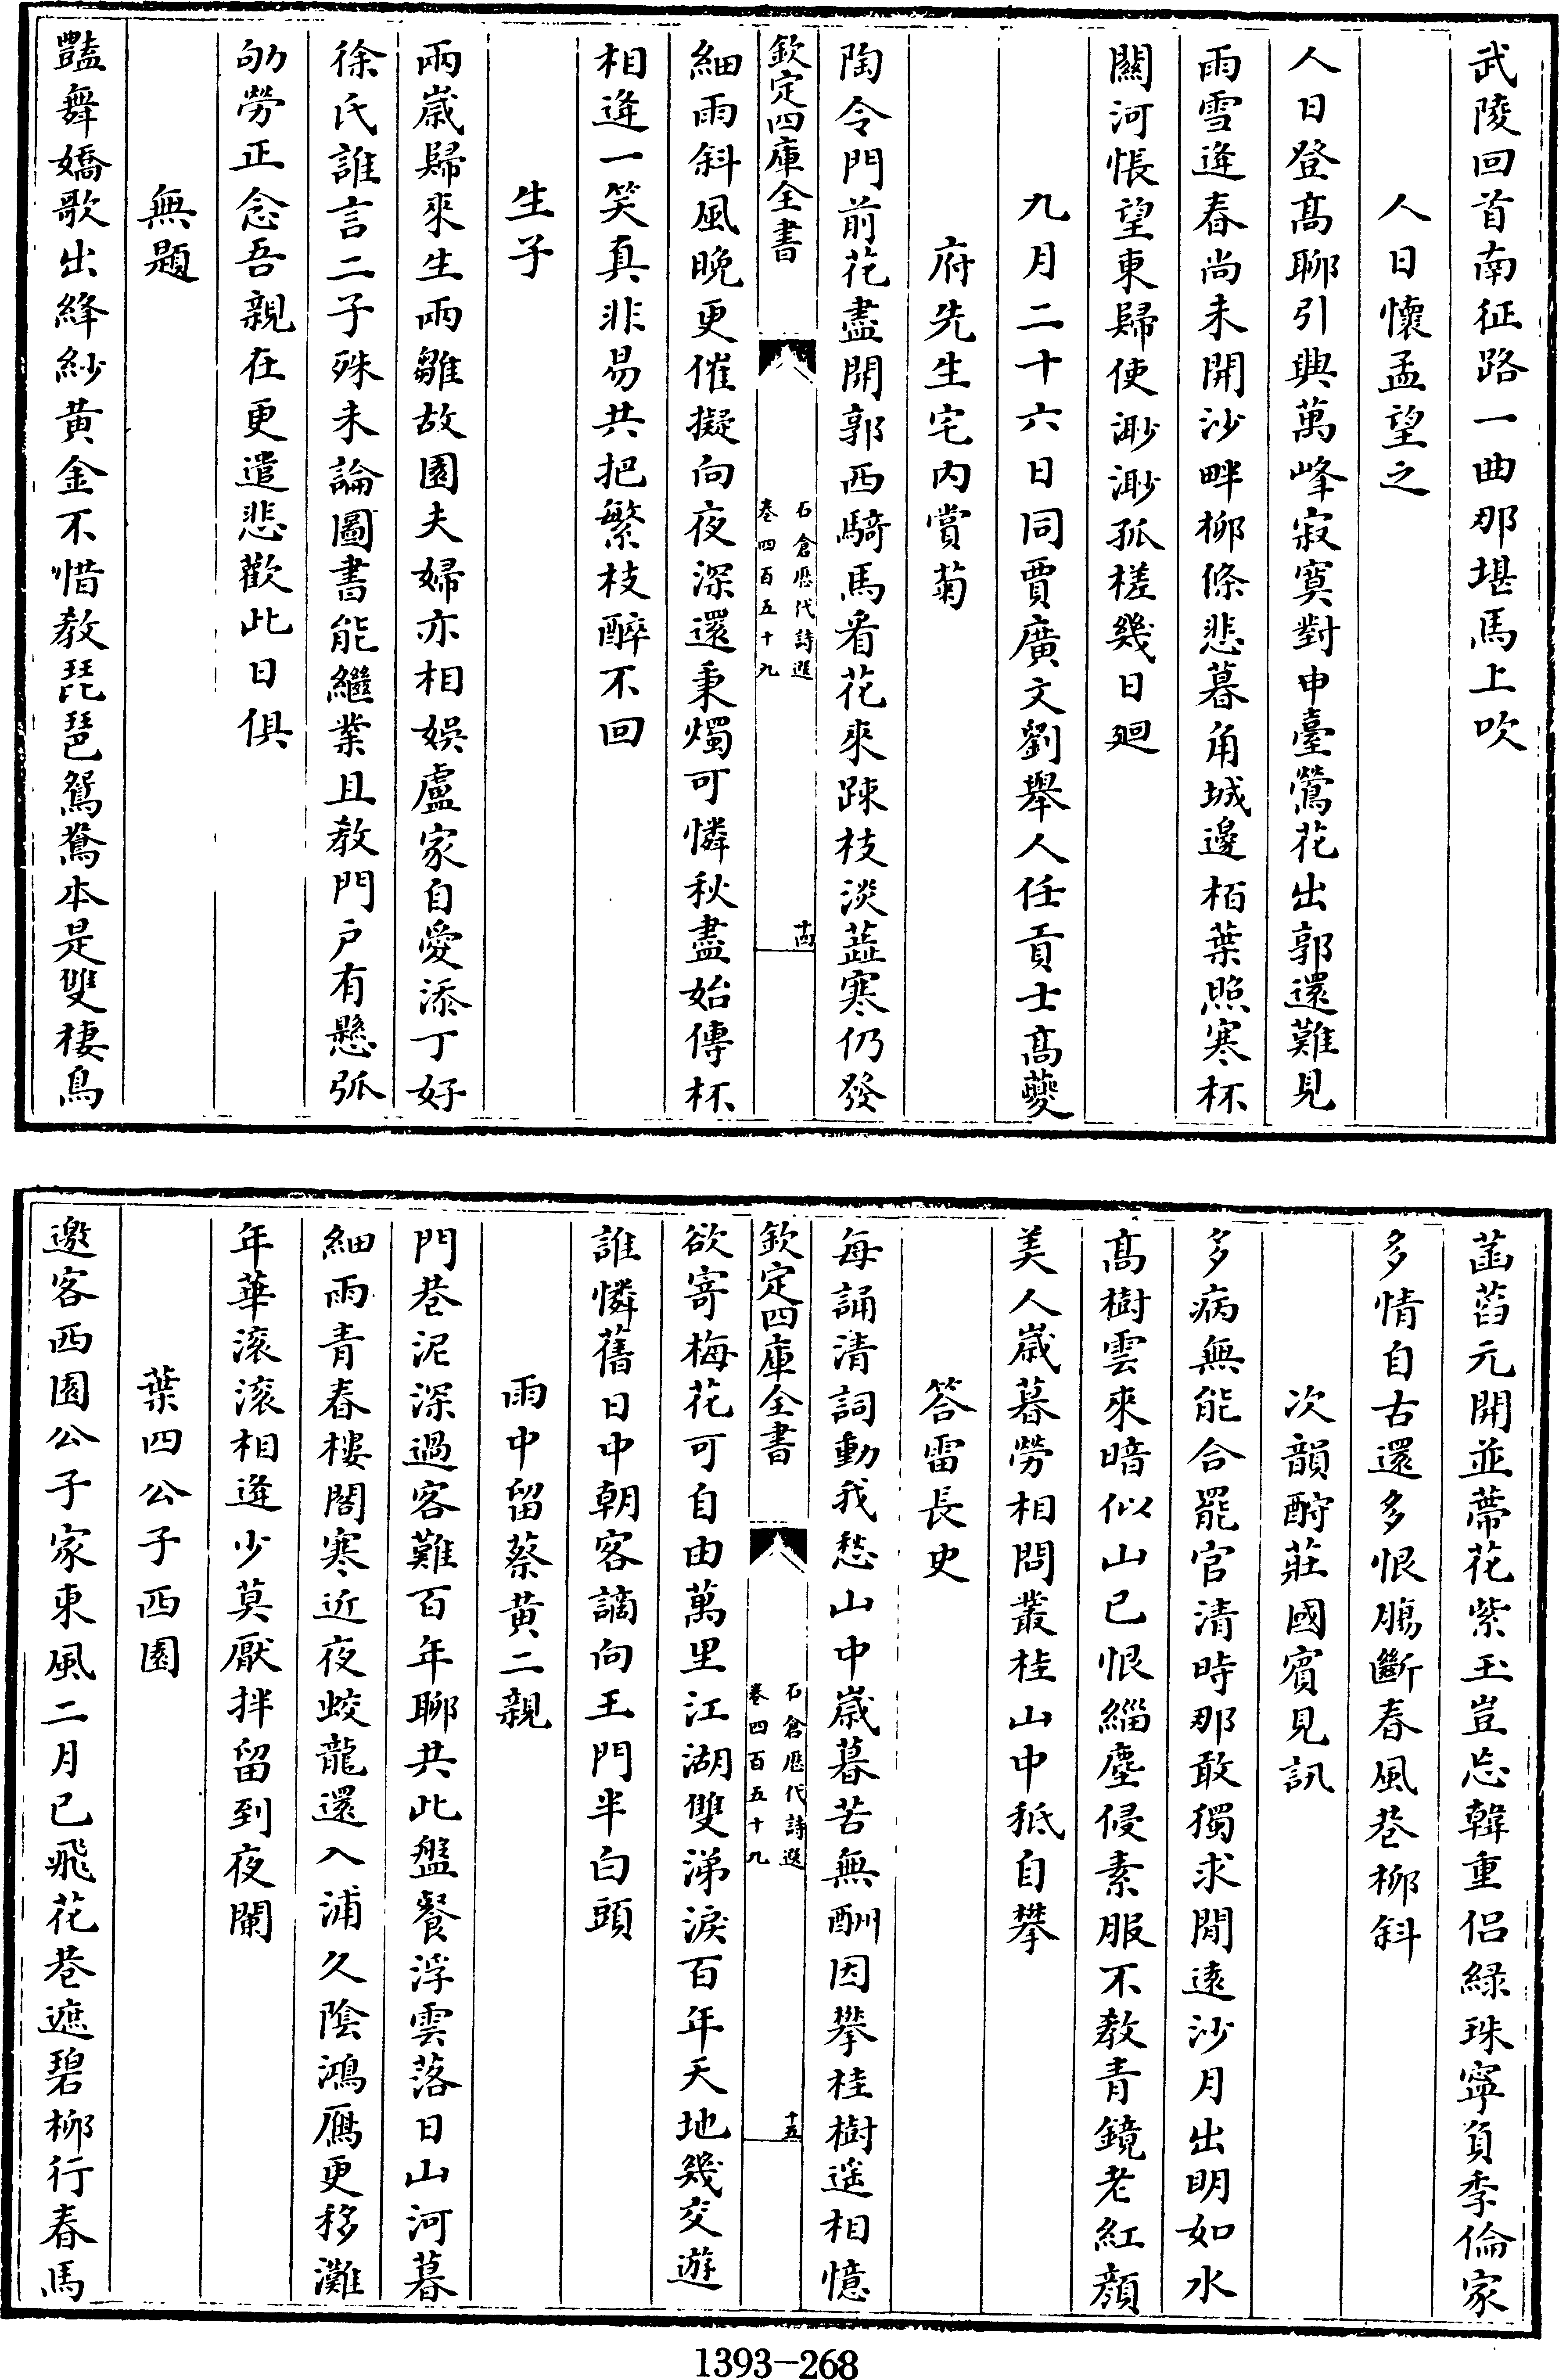 武陵回首南征路一曲那堪馬上吹
人日懷孟望之
人日登髙聊引興萬峰寂寞對申臺鶯花出郭還難見
雨雪逢春尚未開沙畔柳條悲暮角城邊栢葉照寒杯
關河悵望東歸使渺渺孤槎幾日廻
九月二十六日同賈廣文劉舉人任貢士髙夔
府先生宅内賞菊
陶令門前花盡開郭西騎馬看花來踈枝淡蘂寒仍發
欽定四庫全書
石倉歴代詩選
卷四百五十九
十四
細雨斜風晚更催擬向夜深還秉燭可憐秋盡始傳杯
相逢一笑真非易共把繁枝醉不回
生子
兩歳歸來生兩雛故園夫婦亦相娯盧家自愛添丁好
徐氏誰言二子殊未論圖書能繼業且教門戸有懸弧
劬勞正念吾親在更遣悲歡此日俱
無題
豔舞嬌歌出絳紗黄金不惜教琵琶鴛鴦本是雙棲鳥
菡萏元開並蒂花紫玉豈忘韓重侣緑珠寧負季倫家
多情自古還多恨膓斷春風巷柳斜
次韻酧莊國賓見訊
多病無能合罷官清時那敢獨求閒遠沙月出明如水
髙樹雲來暗似山已恨緇塵侵素服不教青鏡老紅顔
美人歳暮勞相問叢桂山中秪自攀
答雷長史
每誦清詞動我愁山中歳暮苦無酬因攀桂樹遥相憶
欽定四庫全書
石倉歴代詩選
卷四百五十九
十五
欲寄梅花可自由萬里江湖雙涕淚百年天地幾交遊
誰憐舊日中朝客謫向王門半白頭
雨中留蔡黄二親
門巷泥深過客難百年聊共此盤餐浮雲落日山河暮
細雨青春樓閣寒近夜蛟龍還入浦久陰鴻鴈更移灘
年華滚滚相逢少莫厭拌留到夜闌
葉四公子西園
邀客西園公子家東風二月已飛花巷遮碧柳行春馬
1393-268